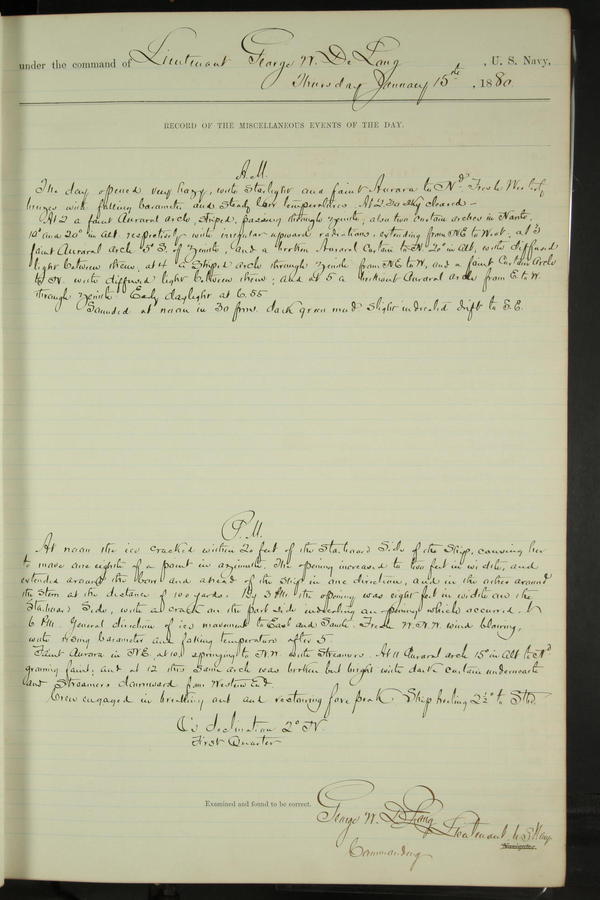 under the command of Lieutenant George W. De Long, U. S. Navy,
Thursday January 15th, 1880.
RECORD OF THE MISCELLANEOUS EVENTS OF THE DAY.
A.M.
The day opened very hazy, with starlight and faint Aurora to Nd. Fresh Westerly
breezes with falling barometer and steady low temperatures. At 2.30 sky cleared -
At 2 a faint Auroral arch, striped, passing through zenith; also two curtain arches in North,
10° and 20° in alt. respectively with irregular upward radiations, extending from NE to West; at 3
faint Auroral arch 5° S. of zenith, and a broken Auroral Curtain to N. 20° in alt, with diffused
light between them, at 4 a striped arch through zenith from NE to W, and a faint Curtain Arch
to N. with diffused light between them; and at 5 a brilliant Auroral arch from E. to W.
through zenith. Early daylight at 6.55
Sounded at noon in 30 fms. dark green mud slight indicated drift to S.E.
P.M.
At noon the ice cracked within 20 feet of the Starboard Side of the Ship, causing her
to move one eighth of a point in azimuth. The opening increased to two feet in width, and
extended around the bow and ahead of the ship in one direction, and in the other around
the stern at the distance of 100 yards. By 3 PM. the opening was eight feet in width on the
Starboard Side, with a crack on the port side indicating an opening which occurred at
6 PM. General direction of ice movement to East and South. Fresh N.N.W. wind blowing,
with rising barometer and falling temperature after 5.
Faint Aurora in NE. at 10, springing to N.W. with Streamers. At 11 Auroral arch 15° in Alt to Nd
growing faint; and at 12 the same arch was broken but bright with dark curtain underneath
and Streamers downward from Western End.
Crew engaged in breaking out and restowing fore peak. Ship heeling 2½° to Stbd.
☾'s declination 2° N.
First Quarter
Examined and found to be correct.
George W. De Long Lieutenant U.S. Navy
Navigator.
Commanding